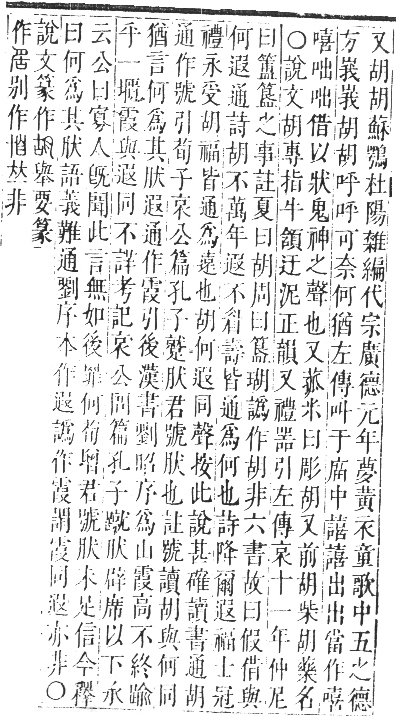 又胡胡蘇鶚杜陽雜編代宗廣德元年夢黃衣童歌中五之德
方峩峩胡胡呼呼可奈何猶左傳叫于廟中譆譆出出當作嘻
嘻咄咄借以狀鬼神之聲也又菰米曰彫胡又前胡柴胡藥名
〇說文胡專指牛頷迂泥正韻又禮器引左傳哀十一年仲尼
曰簠簋之事註夏曰胡周曰簋瑚譌作胡非六書故曰假借與
何遐通詩胡不萬年遐不眉壽皆通爲何也詩降爾遐福士冠
禮永受胡福皆通爲遠也胡何遐同聲按此說甚確讀書通胡
通作號引荀子哀公篇孔子蹵肰君號肰也註號讀胡與何同
猶言何爲其肰遐通作霞引後漢書劉昭序爲山霞高不終踰
乎一壥霞與遐同不詳考記哀公問篇孔子蹴肰辟席以下永
云公曰寡人旣聞此言無如後罪何荀增君號肰未足信今釋
曰何爲其肰語義難通劉序本作遐譌作霞謂霞同遐亦非〇
說文篆作胡舉要篆
作𦙶別作㕆𠀤非